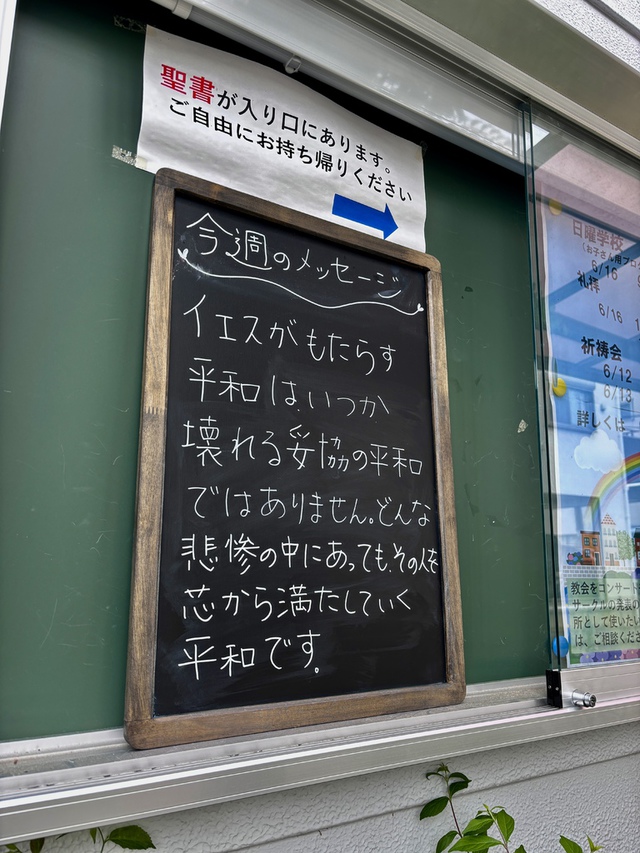 聖書が入り口にあります。
ご自由にお持ち帰りください
今週のメッセージ
イエスがもたらす
平和は、いつか
壊れる妥協の平和
ではありません。どんな
悲惨の中にあっても、その人を
芯から満たしていく
平和です。
日曜学校
(お子さん用プロ
6/16
礼拝
6/16
祈祷会
6/12
6/13
詳しくは
教会をコンサート
サークルの発表
所として使いたい
は、ご相談くだ